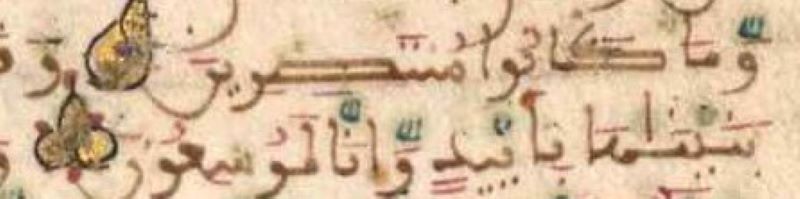 وَّمَا كَانُوا مُنتَصِرِينَ وَ
بَنَيْنَٰهَا بِأَيْيدٍ وَّإِنَّا لَمُوسِعُونَ